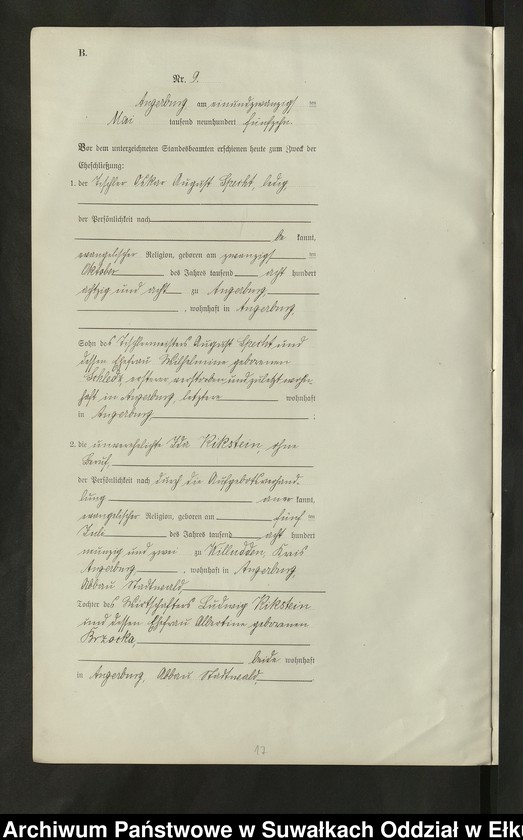 B.
Nr. 9.
Angerburg am einundzwanzigsten
Mai tausend neunhundert fünfzehn.
Vor dem unterzeichneten Standesbeamten erschienen heute zum Zweck der
Eheschließung:
1. der Tischler Oskar August Specht, ledig,
der Persönlichkeit nach
be kannt,
evangelischer Religion, geboren am zwanzigsten
Oktober des Jahres tausend acht hundert
achtzig und acht zu Angerburg,
, wohnhaft in Angerburg,
Sohn des Tischlermeisters August Specht und
dessen Ehefrau Wilhelmine geborenen
ersterer verstorben und zuletzt wohn-
haft in Angerburg, letztere wohnhaft
in Angerburg ;
2. die unverehelichte Ida Rikstein, ohne
Beruf,
der Persönlichkeit nach durch die Aufgebotsverhand-
lung aner kannt,
evangelischer Religion, geboren am fünften
Juli des Jahres tausend acht hundert
neunzig und zwei zu Kreis
Angerburg, wohnhaft in Angerburg,
Abbau Stadtwald
Tochter des Wirtschafters Ludwig Rikstein
und dessen Ehefrau Albertine geborenen
beide wohnhaft
in Angerburg, Abbau Stadtwald
17
Archiwum Państwowe w Suwałkach Oddział w Ełku